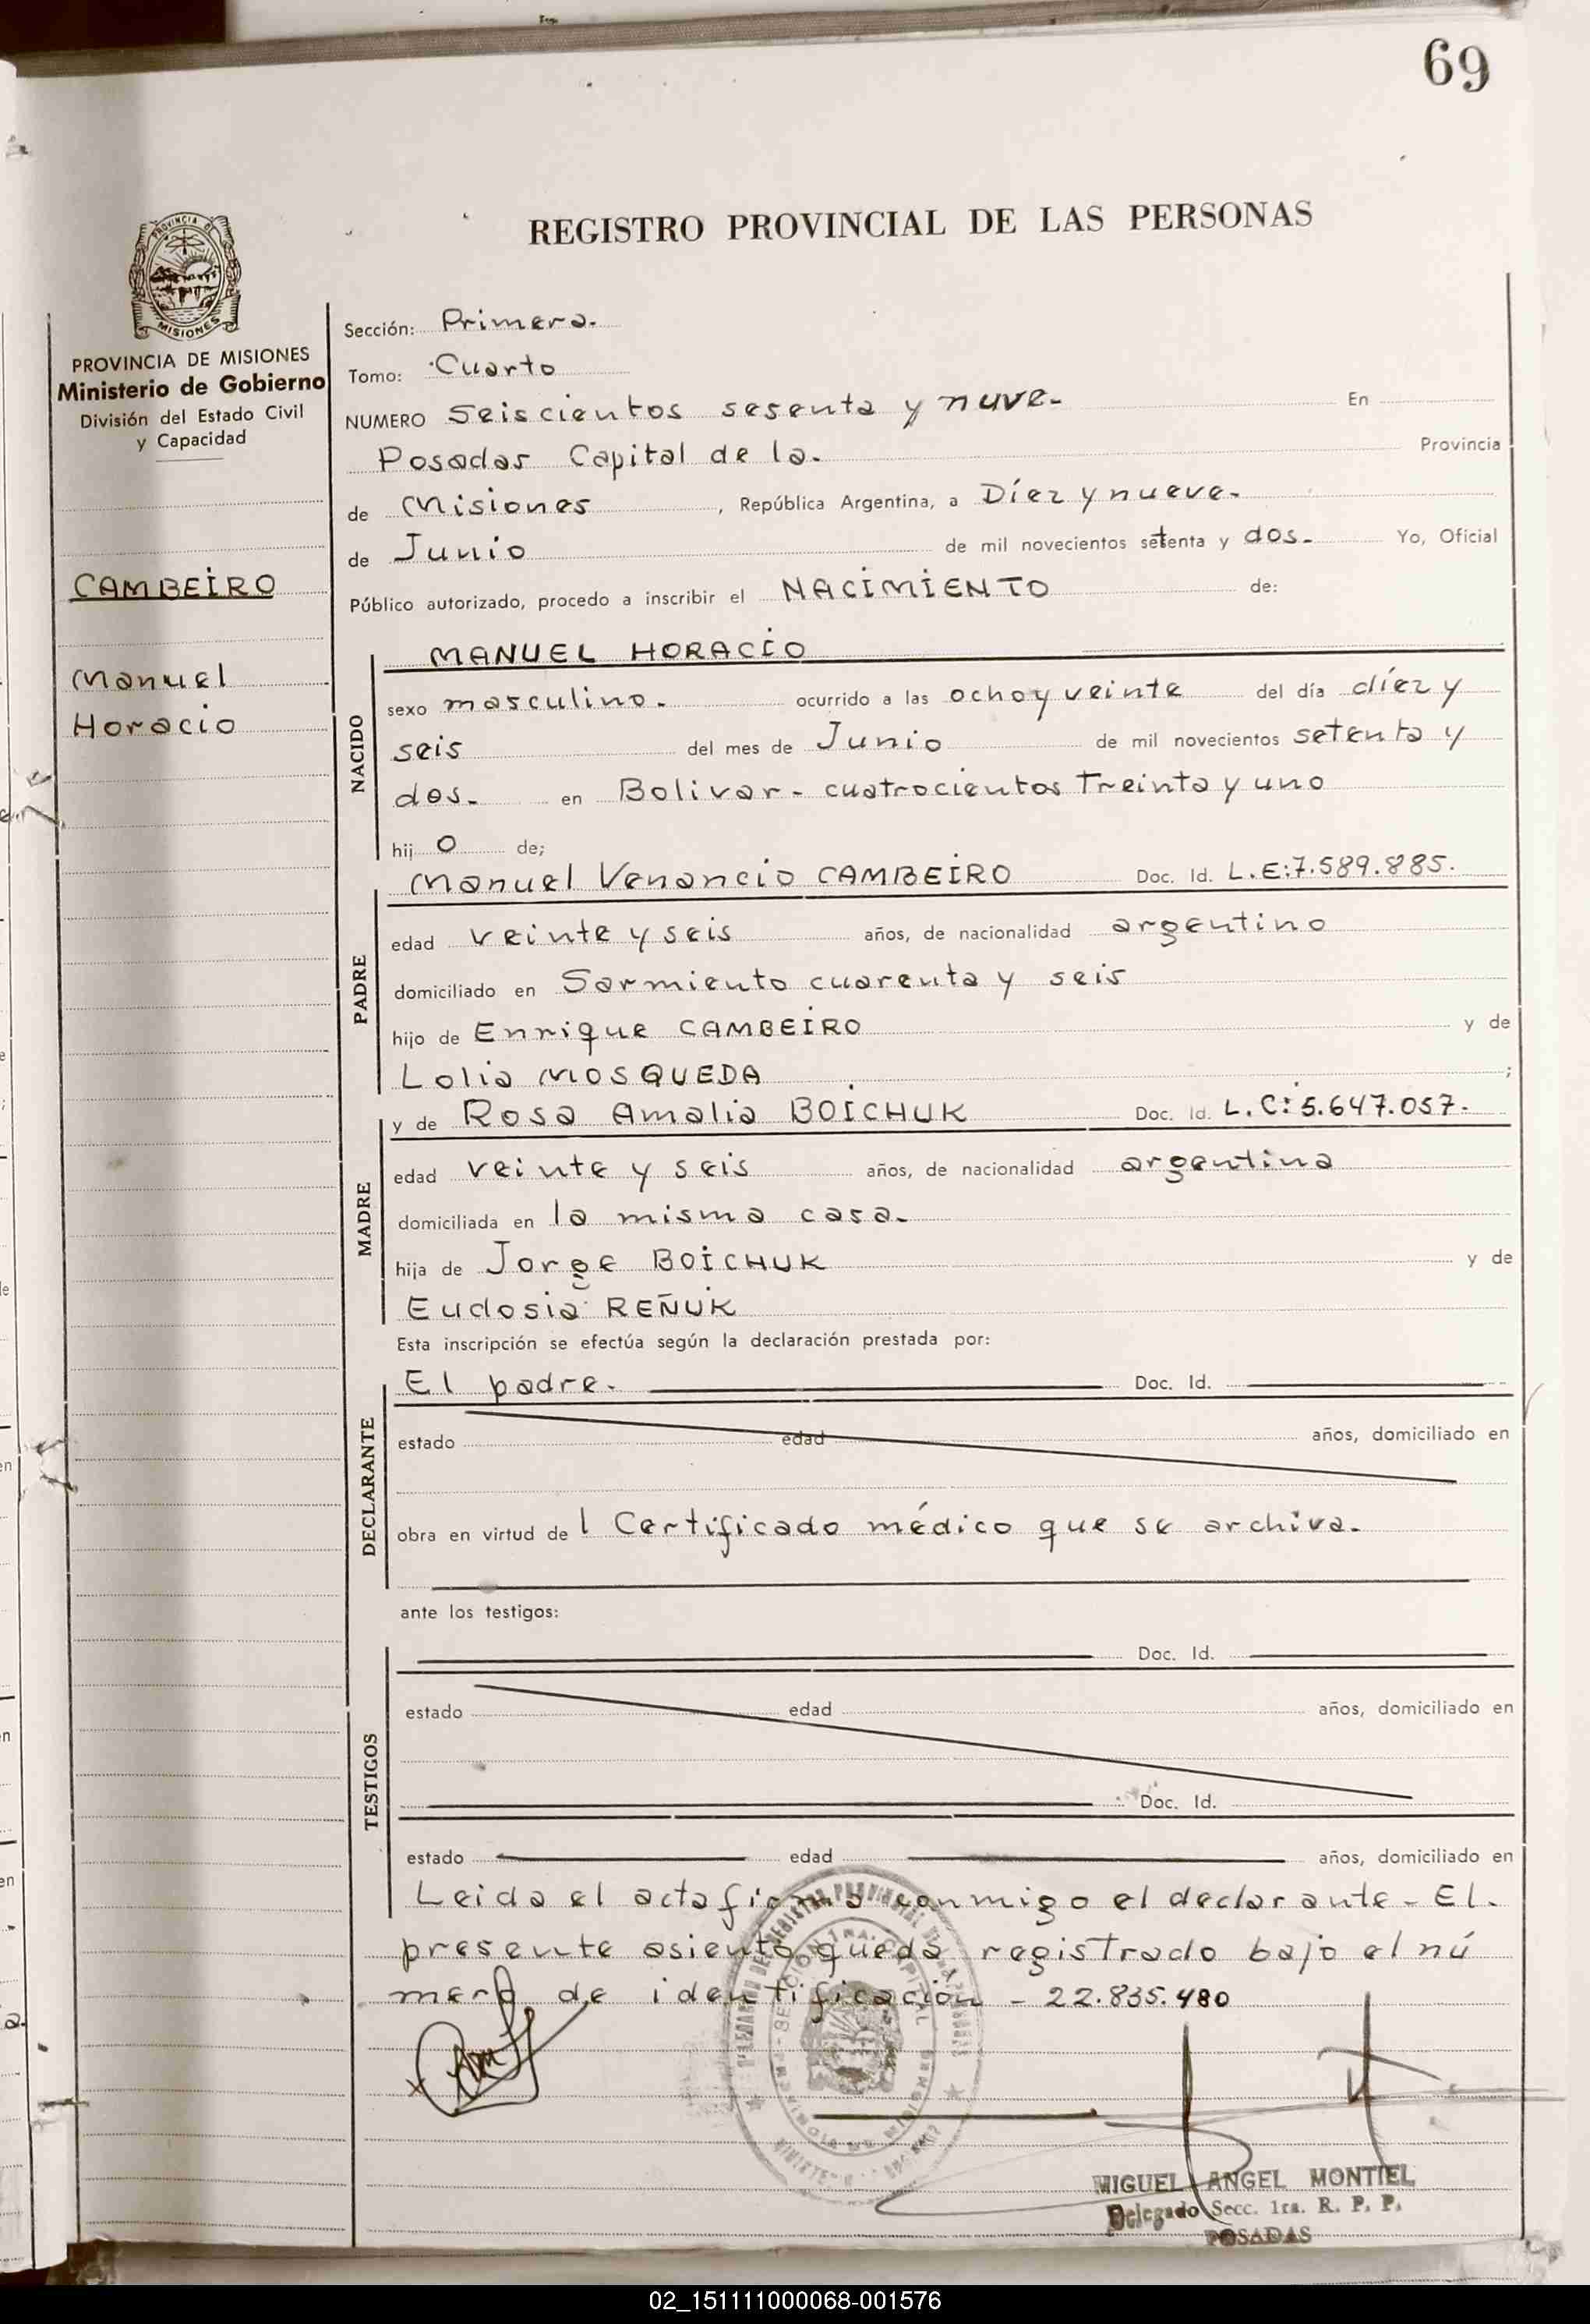 69
REGISTRO PROVINCIAL DE LAS PERSONAS
PROVINCIA
MISIONES
PROVINCIA DE MISIONES
Ministerio de Gobierno
División del Estado Civil
y Capacidad
CAMBEIRO
Manuel
Horacio
Sección: Primera.
Tomo: Cuarto
NUMERO Seiscientos sesenta y nuve. En
Posadas Capital de la. Provincia
de Misiones, República Argentina, a Díez y nueve.
de Junio de mil novecientos setenta y dos. Yo, Oficial
Público autorizado, procedo a inscribir el NACIMIENTO de:
MANUEL HORACIO
NACIDO
sexo masculino. ocurrido a las ocho y veinte del día díez y
seis del mes de Junio de mil novecientos setenta y
dos. en Bolivar - cuatrocientos Treinta y uno
hijo de;
Manuel Venancio CAMBEIRO Doc. Id. L.E:7.589.885.
PADRE
edad veinte y seis años, de nacionalidad argentino
domiciliado en Sarmiento cuarenta y seis
hijo de Enrique CAMBEIRO y de
Lolia MOSQUEDA ;
y de Rosa Amalia BOICHUK Doc. Id. L.C: 5.647.057.
MADRE
edad veinte y seis años, de nacionalidad argentina
domiciliada en la misma casa.
hija de Jorge BOICHUK y de
Eudosia REÑUK
Esta inscripción se efectúa según la declaración prestada por:
El padre. Doc. Id.
DECLARANTE
estado edad años, domiciliado en
obra en virtud del Certificado médico que se archiva.
ante los testigos:
Doc. Id.
TESTIGOS
estado edad años, domiciliado en
Doc. Id.
estado edad años, domiciliado en
Leida el acta firma conmigo el declarante - El.
presente asiento queda registrado bajo el nú
mero de identificación - 22.835.480
MIGUEL ANGEL MONTIEL
Delegado Secc. 1ra. R. P. P.
POSADAS
02_151111000068-001576